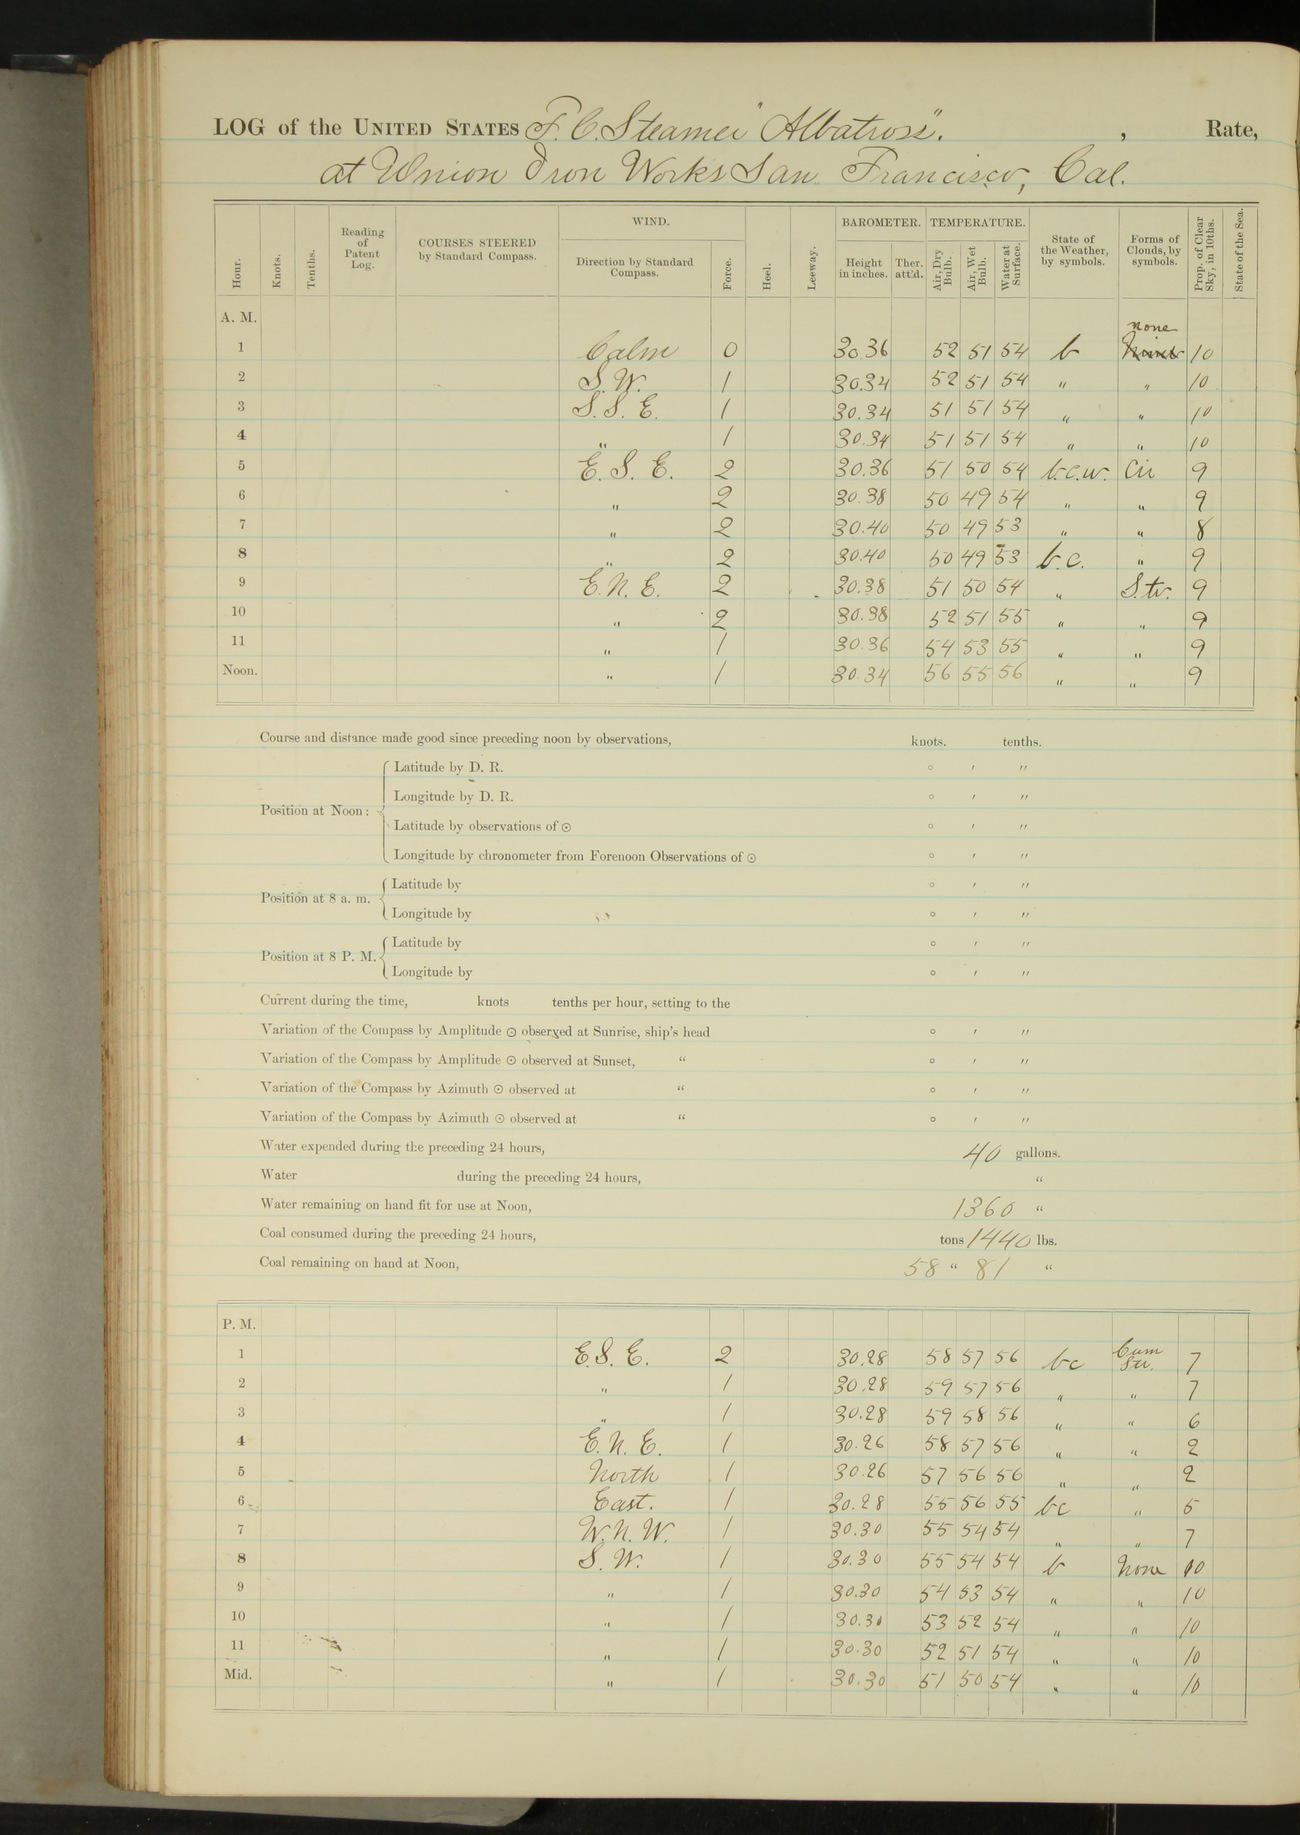 LOG of the UNITED STATES F. C. Steamer "Albatross". , Rate,
at Union Iron Works San Francisco, Cal.
Hour. Knots. Tenths. Reading of Patent Log. COURSES STEERED by Standard Compass. WIND. Direction by Standard Compass. Force. Heel. Leeway. BAROMETER. Height in inches. Ther. att'd. TEMPERATURE. Air, Dry Bulb. Air, Wet Bulb. Water at Surface. State of the Weather, by symbols. Forms of Clouds, by symbols. Prop. of Clear Sky, in 10ths. State of the Sea.
A. M.
1 Calm 0 30.36 52 51 54 b none 10
2 S. W. 1 30.34 52 51 54 " " 10
3 S. S. E. 1 30.34 51 51 54 " " 10
4 " 1 30.34 51 51 54 " " 10
5 E. S. E. 2 30.36 51 50 54 b.c.w. Cir 9
6 " 2 30.38 50 49 54 " " 9
7 " 2 30.40 50 49 53 " " 8
8 " 2 30.40 50 49 53 b.c. " 9
9 E. N. E. 2 30.38 51 50 54 " Str. 9
10 " 2 30.38 52 51 55 " " 9
11 " 1 30.36 54 53 55 " " 9
Noon. " 1 30.34 56 55 56 " " 9
Course and distance made good since preceding noon by observations, knots. tenths.
Position at Noon:
Latitude by D. R. ° ′ ″
Longitude by D. R. ° ′ ″
Latitude by observations of ⊙ ° ′ ″
Longitude by chronometer from Forenoon Observations of ⊙ ° ′ ″
Position at 8 a. m.
Latitude by ° ′ ″
Longitude by ° ′ ″
Position at 8 P. M.
Latitude by ° ′ ″
Longitude by ° ′ ″
Current during the time, knots tenths per hour, setting to the
Variation of the Compass by Amplitude ⊙ observed at Sunrise, ship's head ° ′ ″
Variation of the Compass by Amplitude ⊙ observed at Sunset, " ° ′ ″
Variation of the Compass by Azimuth ⊙ observed at " ° ′ ″
Variation of the Compass by Azimuth ⊙ observed at " ° ′ ″
Water expended during the preceding 24 hours, 40 gallons.
Water during the preceding 24 hours, "
Water remaining on hand fit for use at Noon, 1360 "
Coal consumed during the preceding 24 hours, tons 1440 lbs.
Coal remaining on hand at Noon, 58 " 81 "
P. M.
1 E. S. E. 2 30.28 58 57 56 bc Cum Str. 7
2 " 1 30.28 59 57 56 " " 7
3 " 1 30.28 59 58 56 " " 6
4 E. N. E. 1 30.26 58 57 56 " " 2
5 North 1 30.26 57 56 56 " " 2
6 East. 1 30.28 55 56 55 bc " 5
7 W. N. W. 1 30.30 55 54 54 " " 7
8 S. W. 1 30.30 55 54 54 b None 10
9 " 1 30.30 54 53 54 " " 10
10 " 1 30.30 53 52 54 " " 10
11 " 1 30.30 52 51 54 " " 10
Mid. " 1 30.30 51 50 54 " " 10